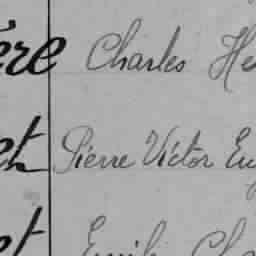 ère Charles He
et Pierre Victor Eu
et Emile Ch